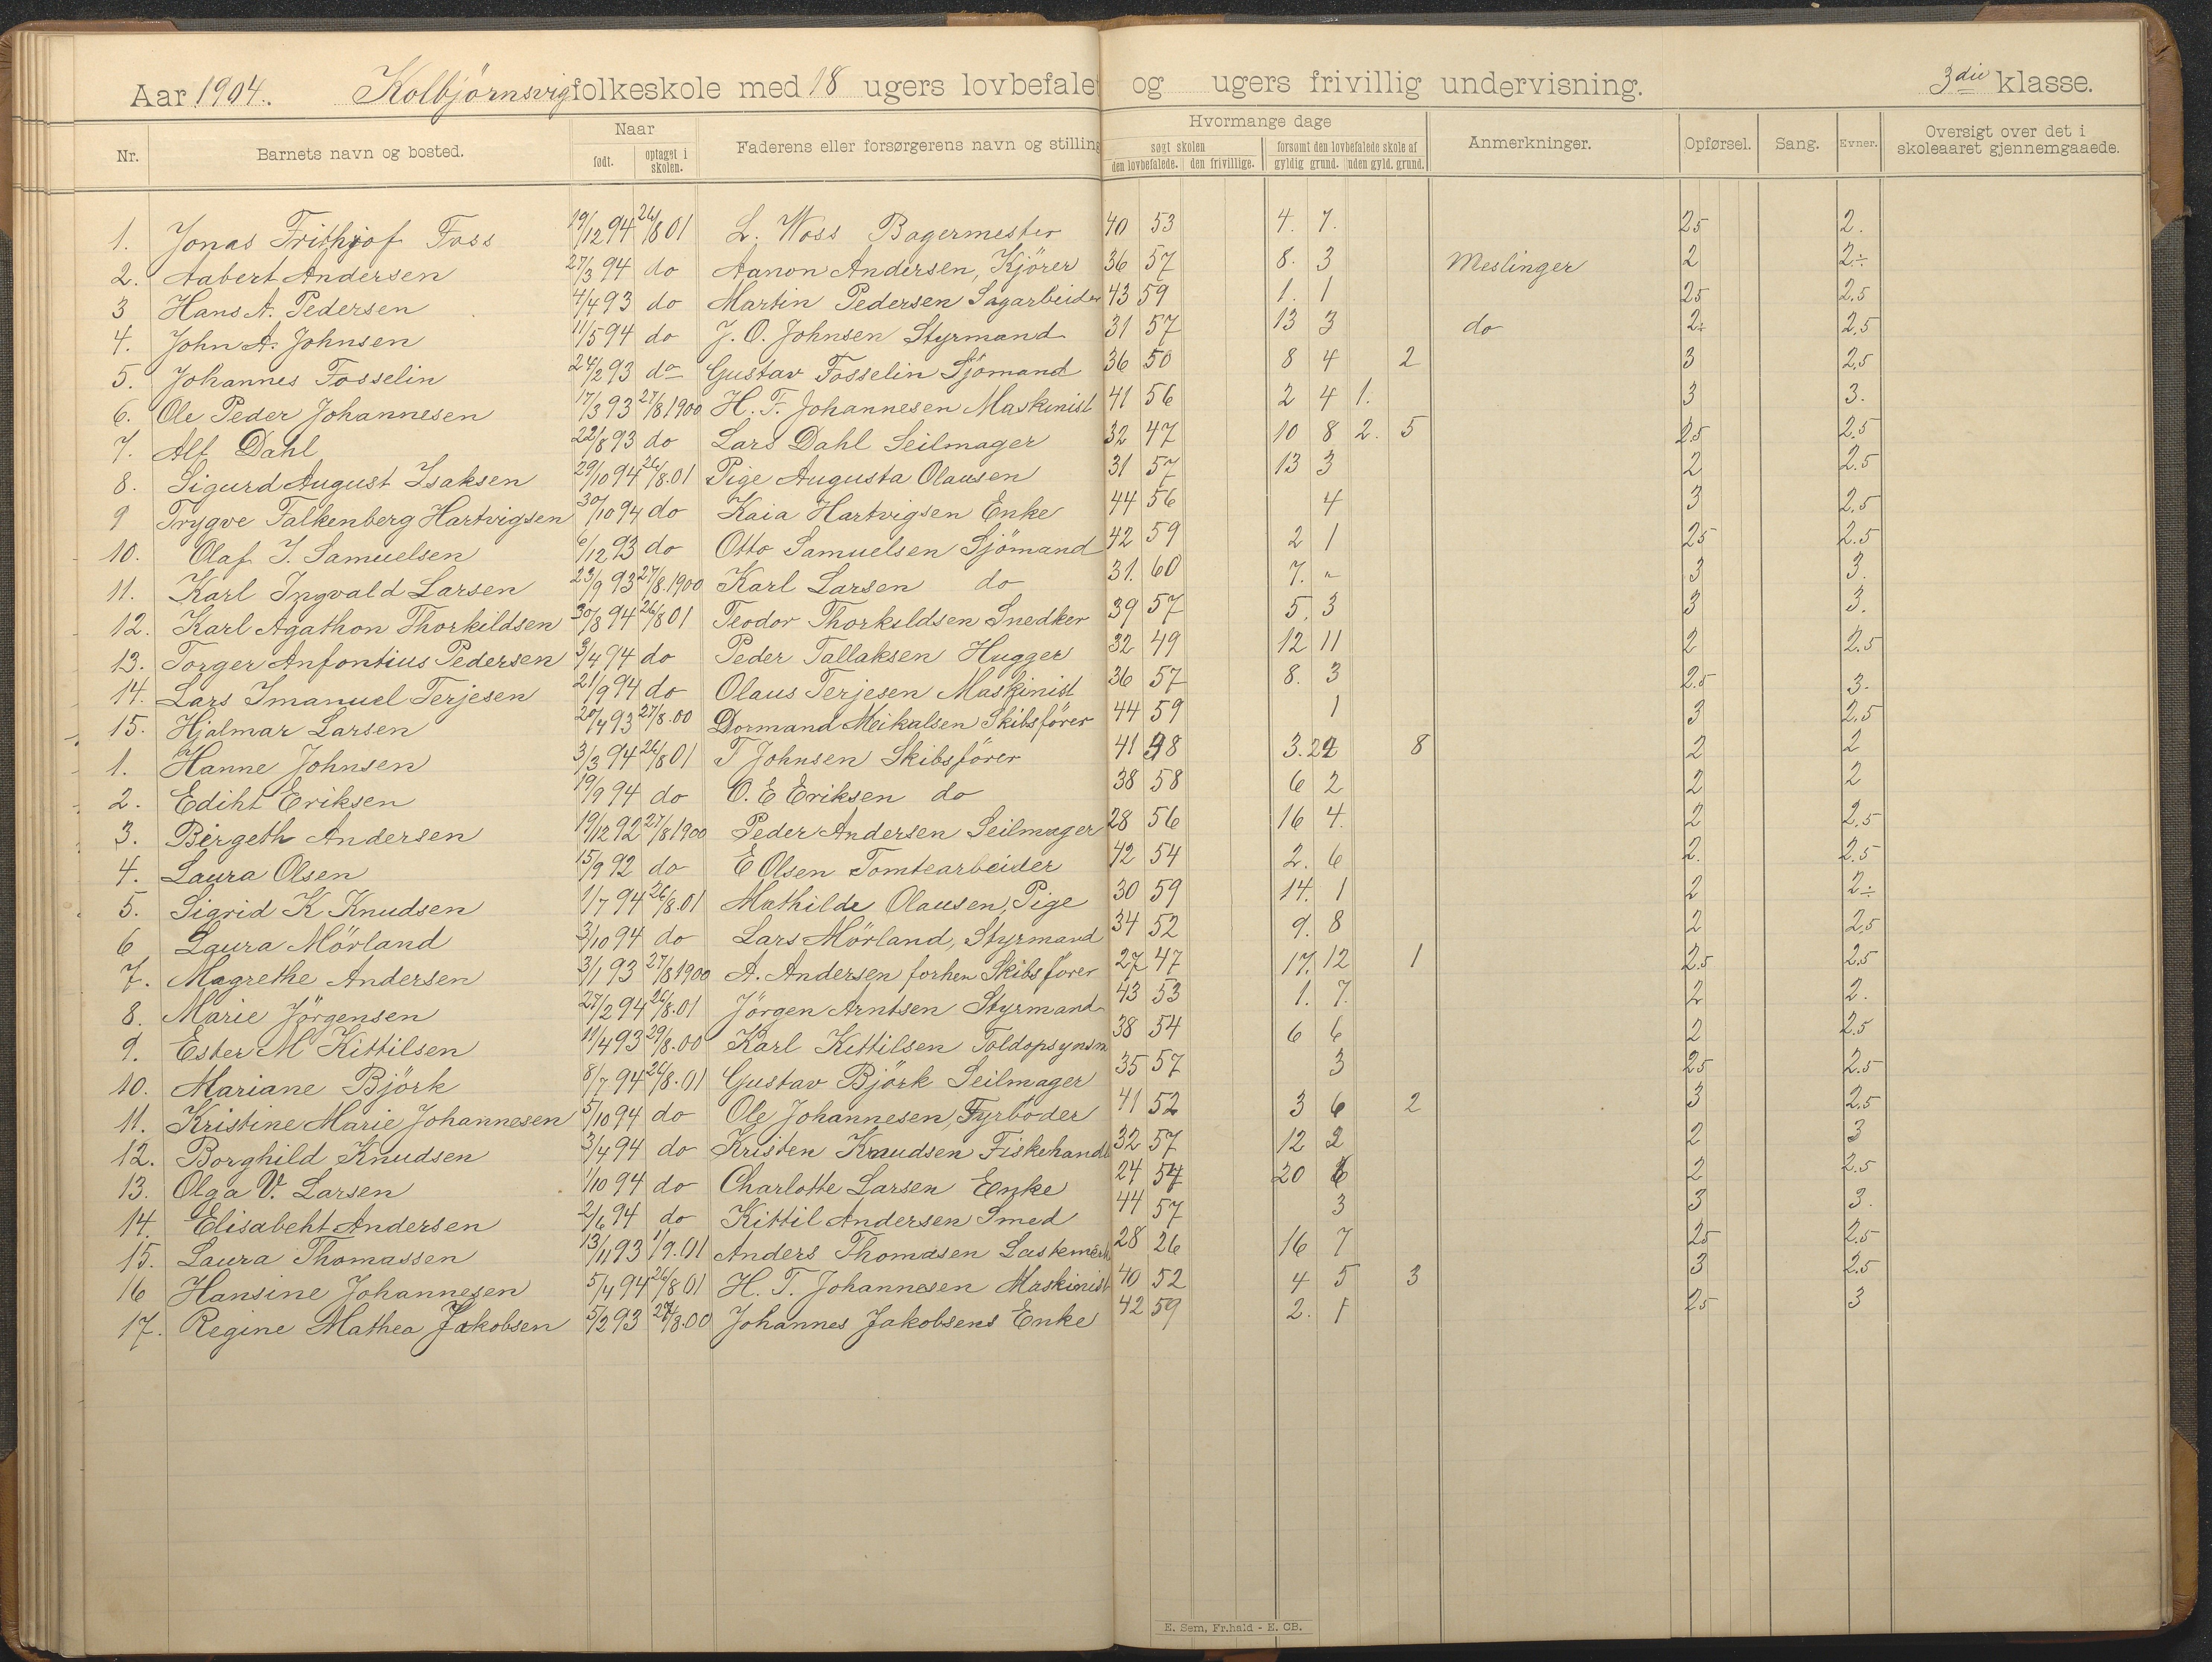 Aar 1904. Kolbjörnsvig folkeskole med 18 ugers lovbefalet og ugers frivillig undervisning. 3die klasse.
Nr. Barnets navn og bosted. Naar født. optaget i skolen. Faderens eller forsørgerens navn og stilling Hvormange dage søgt skolen den lovbefalede. den frivillige. forsømt den lovbefalede skole af gyldig grund. uden gyld. grund. Anmerkninger. Opførsel. Sang. Evner. Oversigt over det i skoleaaret gjennemgaaede.
1. Jonas Frithjof Foss 19/12 94 26/8 01 L. Woss Bagermester 40 53 4. 7. 25 2.
2. Aabert Andersen 27/3 94 do Aanon Andersen, Kjörer 36 57 8. 3 Meslinger 2 2÷
3 Hans A. Pedersen 4/4 93 do Martin Pedersen Sagarbeider 43 59 1. 1 25 2.5
4. John A. Johnsen 11/5 94 do J. O. Johnsen Styrmand 31 57 13 3 do 2÷ 2.5
5. Johannes Fosselin 24/2 93 do Gustav Fosselin Sjömand 36 50 8 4 2 3 2.5
6. Ole Peder Johannesen 17/3 93 27/8 1900 H. T. Johannesen Maskinist 41 56 2 4 1. 3 3.
7. Alf Dahl 22/8 93 do Lars Dahl Seilmager 32 47 10 8 2. 5 2.5 2.5
8. Sigurd August Isaksen 29/10 94 26/8.01 Pige Augusta Olausen 31 57 13 3 2 2.5
9 Trygve Falkenberg Hartvigsen 30/10 94 do Kaia Hartvigsen Enke 44 56 4 3 2.5
10. Olaf J. Samuelsen 6/12 93 do Otto Samuelsen Sjömand 42 59 2 1 25 2.5
11. Karl Ingvald Larsen 23/9 93 27/8 1900 Karl Larsen do 31. 60 7. " 3 3.
12. Karl Agathon Thorkildsen 30/8 94 26/8 01 Teodor Thorkildsen Snedker 39 57 5. 3 3 3.
13. Torger Anfontius Pedersen 3/4 94 do Peder Tallaksen Hugger 32 49 12 11 2 2.5
14. Lars Imanuel Terjesen 21/9 94 do Olaus Terjesen Maskinist 36 57 8. 3 2.5 3.
15. Hjalmar Larsen 20/4 93 27/8.00 Dormand Meikalsen Skibsförer 44 59 1 3 2.5
1. Hanne Johnsen 3/3 94 26/8 01 T Johnsen Skibsförer 41 38 3. 22 8 2 2
2. Ediht Eriksen 19/9 94 do O. E Eriksen do 38 58 6 2 2 2
3. Birgeth Andersen 19/12 92 27/8 1900 Peder Andersen Seilmager 28 56 16 4. 2 2.5
4. Laura Olsen 15/9 92 do E Olsen Tomtearbeider 42 54 2. 6 2. 2.5
5. Sigrid K Knudsen 1/7 94 26/8.01 Mathilde Olausen, Pige 30 59 14. 1 2 2÷
6 Laura Mörland 3/10 94 do Lars Mörland, Styrmand 34 52 9. 8 2 2.5
7. Magrethe Andersen 3/1 93 27/8 1900 A. Andersen forhen Skibsförer 27 47 17. 12 1 2.5 2.5
8. Marie Jörgensen 27/2 94 26/8.01 Jörgen Arntsen Styrmand 43 53 1. 7. 2 2.
9. Ester M Kittilsen 11/4 93 29/8.00 Karl Kittilsen Toldopsynsm 38 54 6 6 2 2.5
10. Mariane Björk 8/7 94 26/8.01 Gustav Björk Seilmager 35 57 3 25 2.5
11. Kristine Marie Johannesen 5/10 94 do Ole Johannesen, Fyrböder 41 52 3 6 2 3 2.5
12. Borghild Knudsen 3/4 94 do Kristen Knudsen Fiskehandl 32 57 12 2 2 3
13. Olga V. Larsen 1/10 94 do Charlotte Larsen Enke 24 54 20 6 2 2.5
14. Elisabeht Andersen 2/6 94 do Kittil Andersen Smed 44 57 3 3 3.
15. Laura Thomassen 13/11 93 1/9.01 Anders Thomasen 28 26 16 7 25 2.5
16 Hansine Johannesen 5/4 94 26/8 01 H. T. Johannesen Maskinist 40 52 4 5 3 3 2.5
17. Regine Mathea Jakobsen 5/2 93 27/8.00 Johannes Jakobsens Enke 42 59 2. 1 25 3
E. Sem, Fr.hald - E. CB.